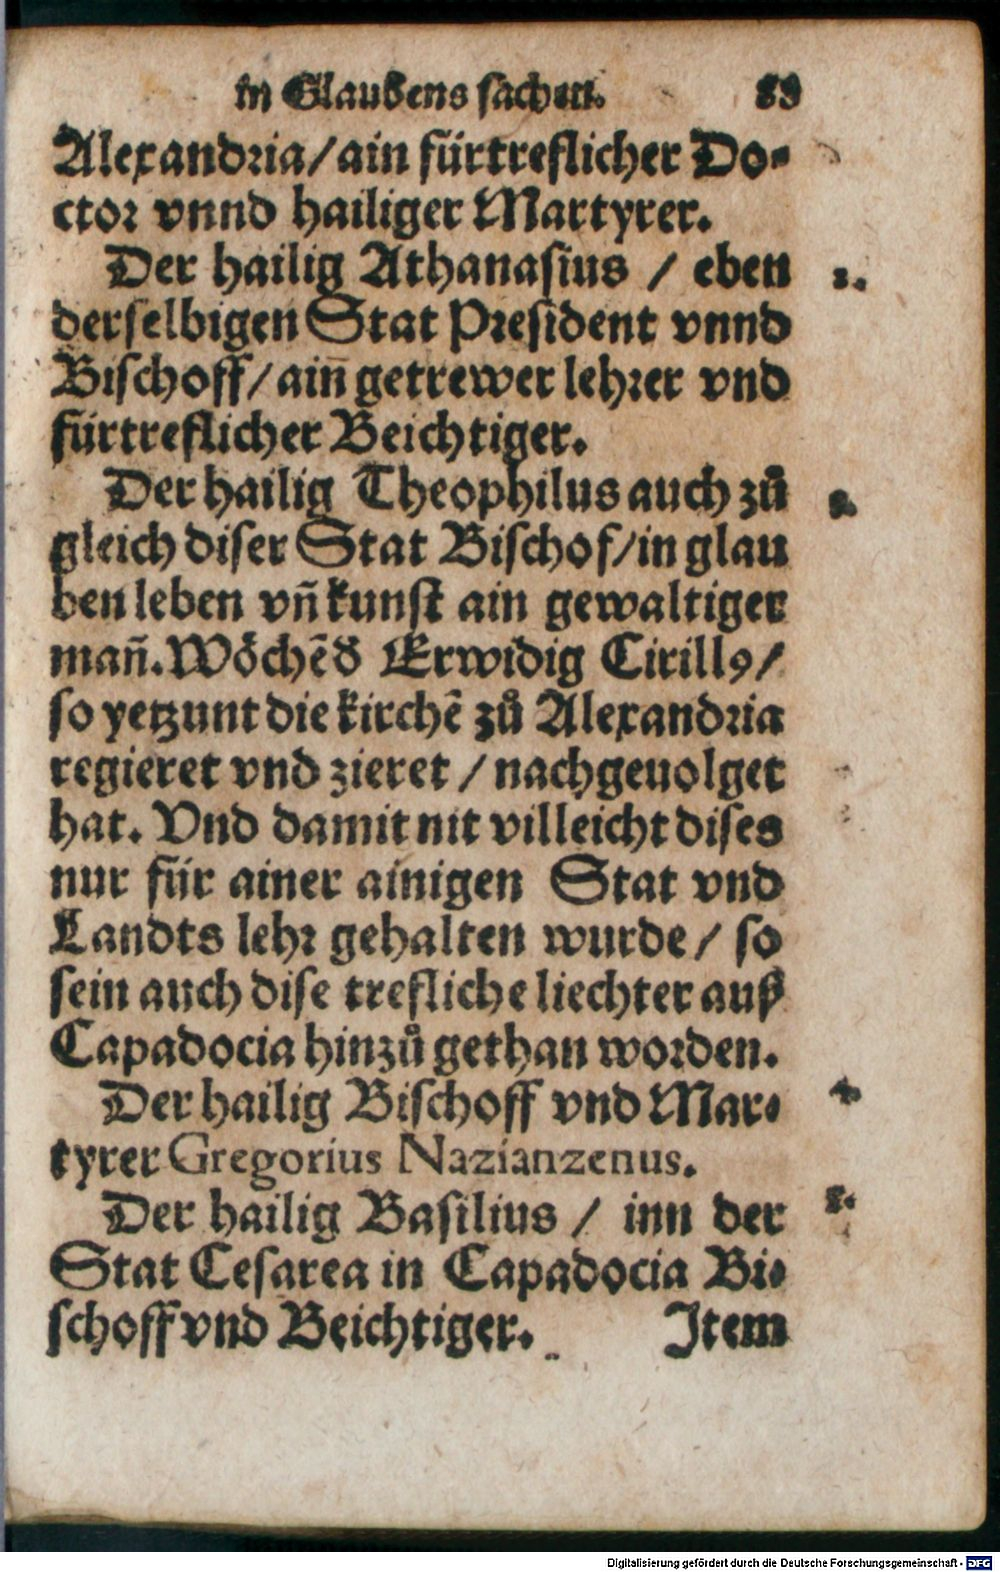 in Glaubens sachen. 89
Alexandria/ ain fürtreflicher Do-
ctor vnnd hailiger Martyrer.
Der hailig Athanasius / eben 2.
derselbigen Stat President vnnd
Bischoff/ ain̄ getrewer lehrer vnd
fürtreflicher Beichtiger.
Der hailig Theophilus auch zů
gleich diser Stat Bischof/ in glau
ben leben vn̄ kunst ain gewaltiger
man̄. Wöchẽd Erwidig Cirillꝰ/
so yetzunt die kirchẽ zů Alexandria
regieret vnd zieret / nachgeuolget
hat. Vnd damit nit villeicht dises
nur für ainer ainigen Stat vnd
Landts lehr gehalten wurde / so
sein auch dise trefliche liechter auß
Capadocia hinzů gethan worden.
Der hailig Bischoff vnd Mar- 4
tyrer Gregorius Nazianzenus.
Der hailig Basilius / inn der 5.
Stat Cesarea in Capadocia Bi-
schoff vnd Beichtiger. Item
Digitalisierung gefördert durch die Deutsche Forschungsgemeinschaft - DFG